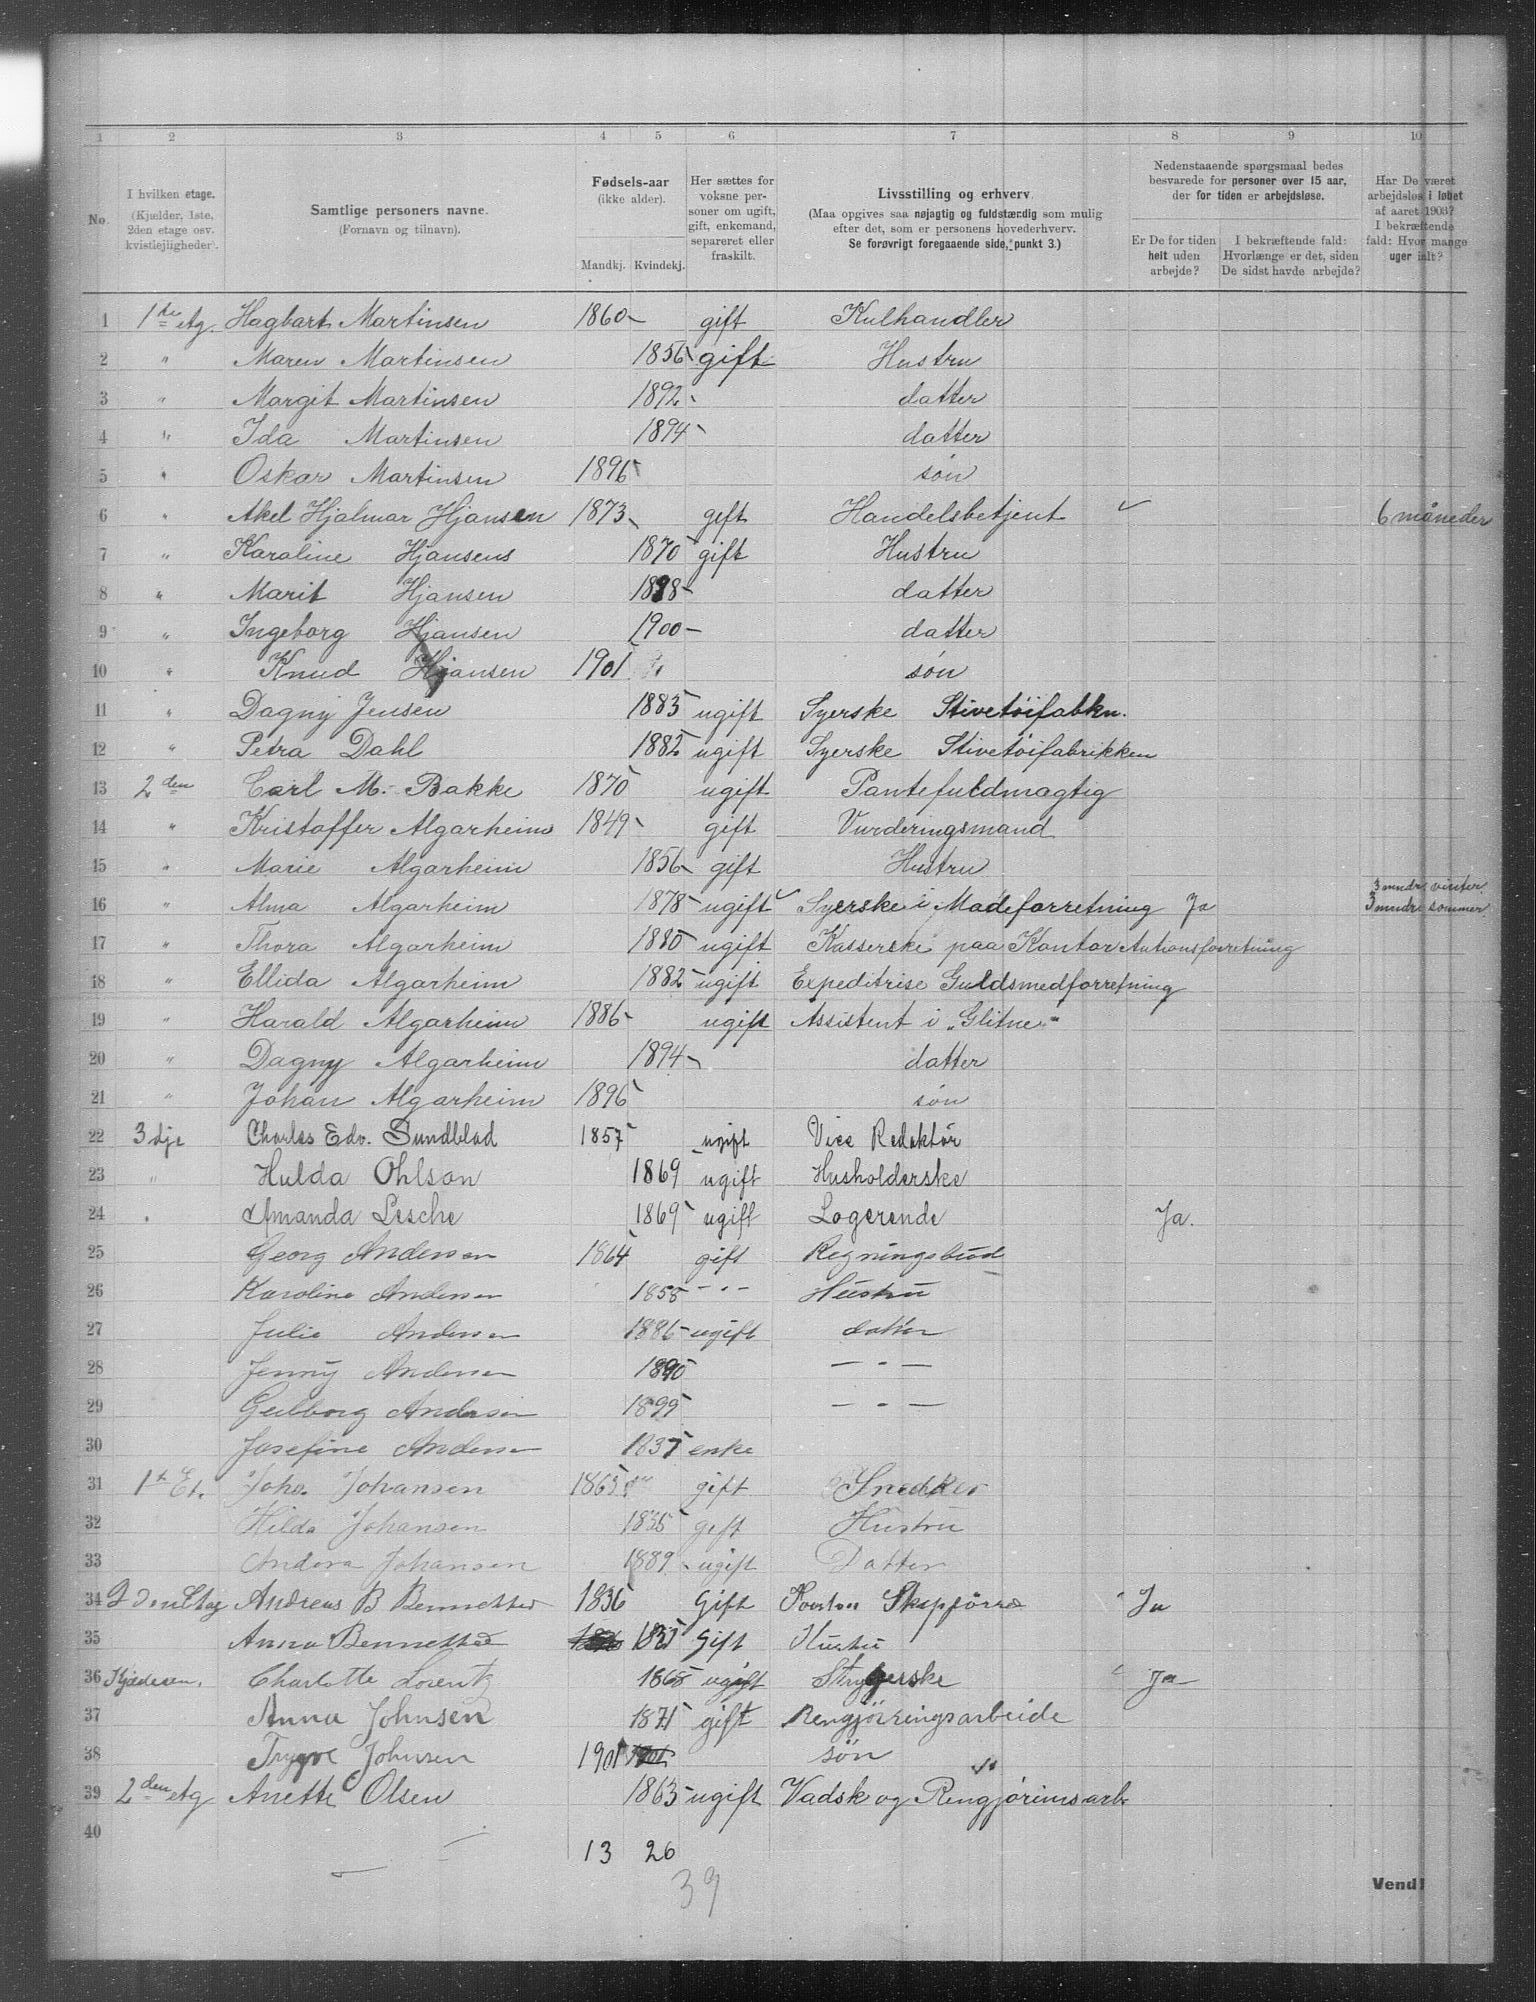 1 2 3 4 5 6 7 8 9 10
No.
I hvilken etage. (Kjælder, 1ste, 2den etage osv. kvistleiligheder).
Samtlige personers navne. (Fornavn og tilnavn).
Fødsels-aar (ikke alder). Mandkj. Kvindekj.
Her sættes for voksne personer om ugift, gift, enkemand, separeret eller fraskilt.
Livsstilling og erhverv (Maa opgives saa nøjagtig og fuldstærdig som mulig efter det, som er personens hovederhverv. Se forøvrigt foregaaende side, punkt 3.)
Nedenstaaende spørgsmaal bedes besvarede for personer over 15 aar, der for tiden er arbejdsløse.
Er De for tiden helt uden arbejde?
I bekræftende fald: Hvorlænge er det, siden De sidst havde arbejde?
Har De været arbejdsløs i løbet af aaret 1903? I bekræftende fald: Hvor mange uger ialt?
1 1ste etg. Hagbart Martinsen 1860 gift Kulhandler
2 " Maren Martinsen 1856 gift Hustru
3 " Margit Martinsen 1892 datter
4 " Ida Martinsen 1894 datter
5 " Oskar Martinsen 1896 søn
6 " Akel Hjalmar Hjansen 1873 gift Handelsbetjent 6 måneder
7 " Karoline Hjansens 1870 gift Hustru
8 " Marit Hjansen 1898 datter
9 " Ingeborg Hjansen 1900 datter
10 " Knud Hjansen 1901 søn
11 " Dagny Jensen 1883 ugift Syerske Stivetøifabkn.
12 " Petra Dahl 1882 ugift Syerske Stivetøifabrikken
13 2den Carl M. Bakke 1870 ugift Pantefuldmagtig
14 " Kristoffer Algarheim 1849 gift Vurderingsmand
15 " Marie Algarheim 1856 gift Hustru
16 " Alma Algarheim 1878 ugift Syerske i Modeforretning Ja 3 mndr. vinter 3 mndr. sommer
17 " Thora Algarheim 1880 ugift Kasserske paa Kontor Autionsforretning
18 " Ellida Algarheim 1882 ugift Expeditrise Guldsmedforretning
19 " Harald Algarheim 1886 ugift Assistent i "Glitne"
20 " Dagny Algarheim 1894 datter
21 " Johan Algarheim 1896 søn
22 3dje Charles Edv. Sundblad 1857 ugift Vice Redaktør
23 " Hulda Ohlson 1869 ugift Husholderske
24 " Amanda Lesche 1869 ugift Logerende Ja.
25 Georg Andersen 1864 gift Regningsbud
26 Karoline Andersen 1858 -"- Hustru
27 Julie Andersen 1886 ugift datter
28 Jenny Andersen 1890 -"-
29 Andersen 1899 -"-
30 Josefine Andersen 1837 enke
31 1st Et. Johs. Johansen 1865 gift Snedker
32 Hilda Johansen gift Hustru
33 Andora Johansen 1889 ugift Datter
34 2den Etag Andreas B Bennetter 1836 Gift Skipsfører Ja
35 Anna Bennetter Gift Hustru
36 Kjælderen. Charlotte Lorentz 1868 ugift Strygerske Ja
37 Anna Johnsen 1871 gift Rengjørringsarbeide
38 Trygve Johnsen 1901 søn
39 2den etg Anette Olsen 1863 ugift Vadsk og Rengjørinsarb.
40
13 26
39
Vend!